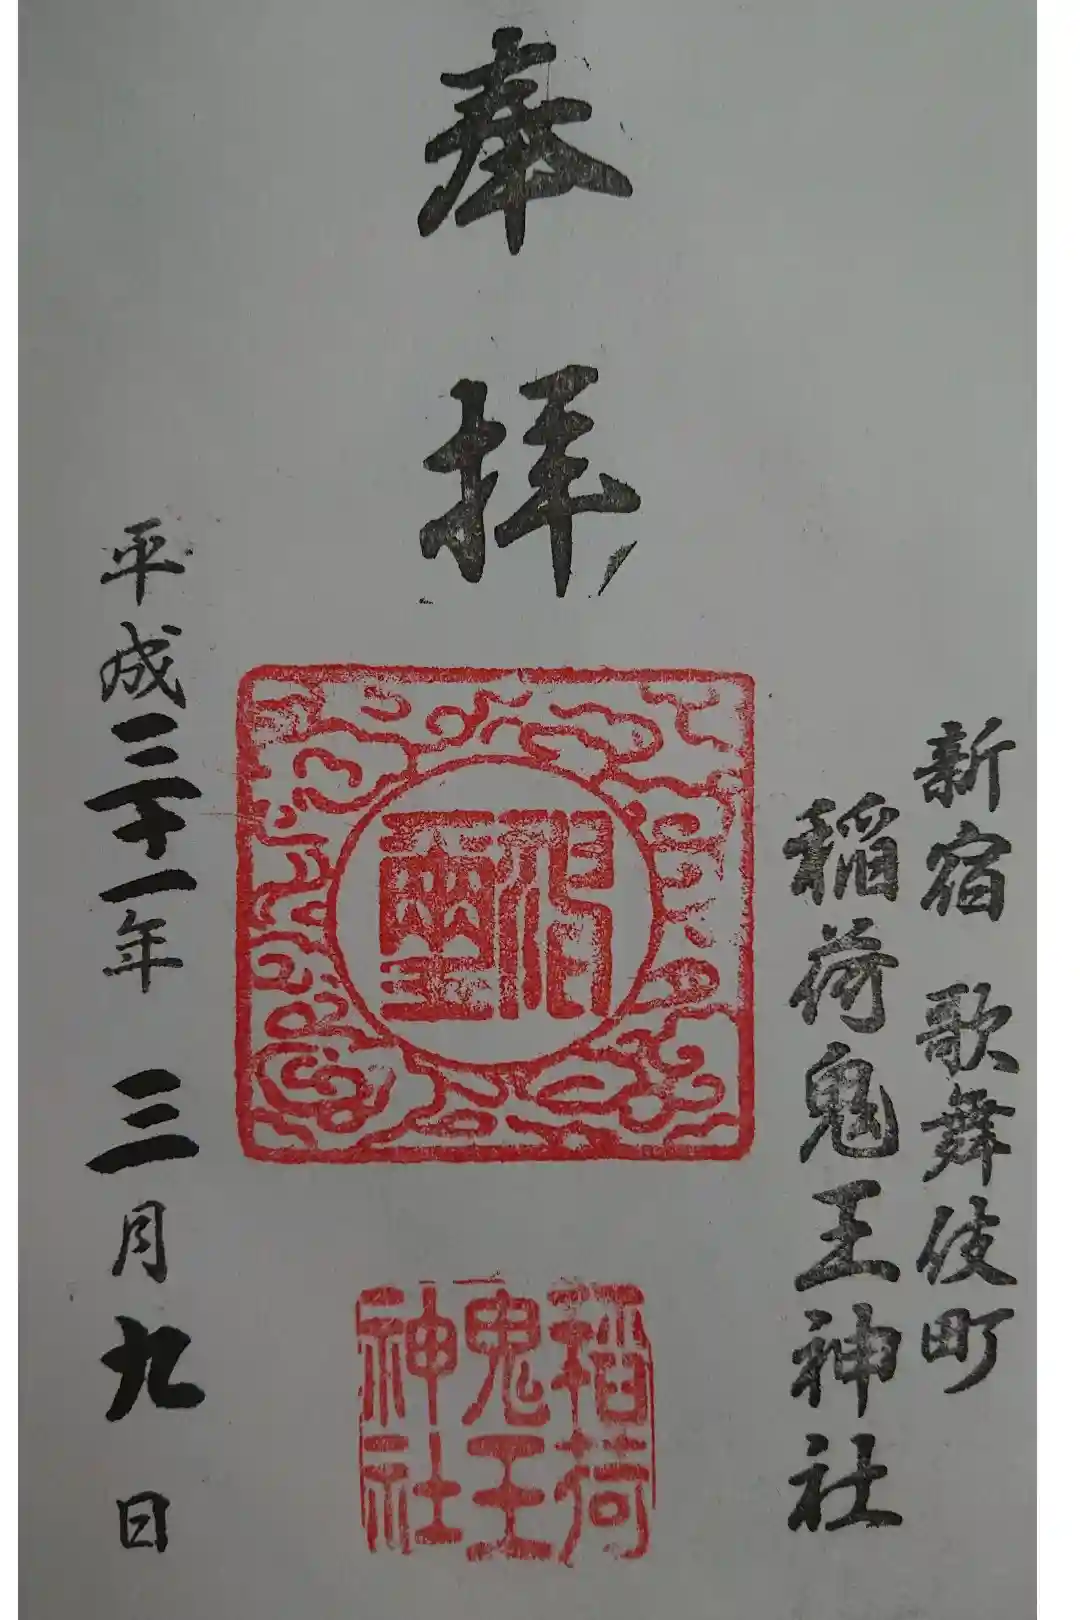 奉拝
新宿 歌舞伎町
稲荷鬼王神社
稲荷
鬼王
神社
平成三十一年 三月九日